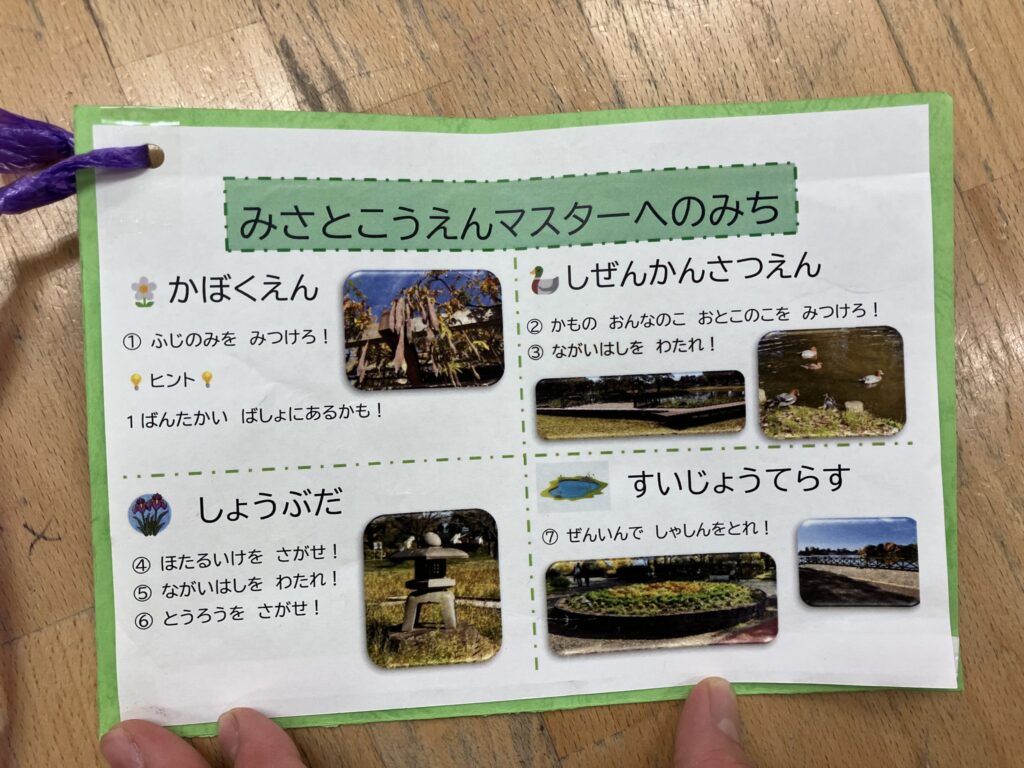 みさとこうえんマスターへのみち
かぼくえん
① ふじのみを みつけろ！
ヒント
1ばんたかい ばしょにあるかも！
しぜんかんさつえん
② かもの おんなのこ おとこのこを みつけろ！
③ ながいはしを わたれ！
しょうぶだ
④ ほたるいけを さがせ！
⑤ ながいはしを わたれ！
⑥ とうろうを さがせ！
すいじょうてらす
⑦ ぜんいんで しゃしんをとれ！